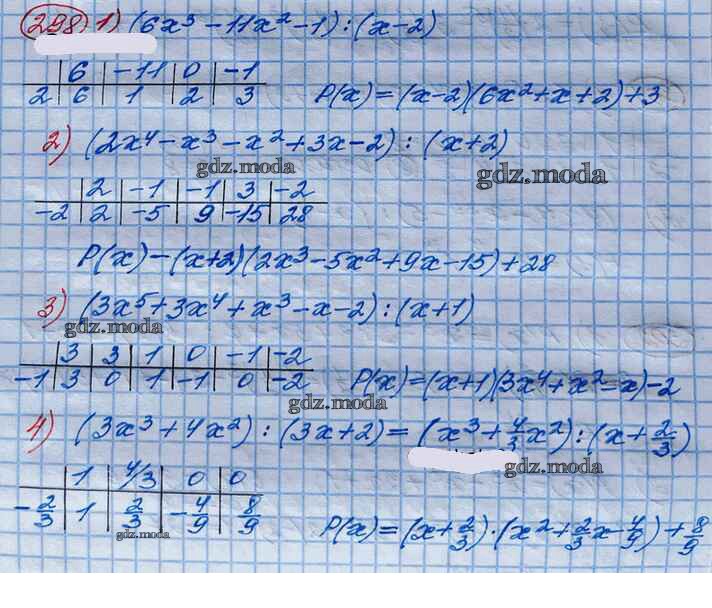 298) 1) (6x³ - 11x² - 1) : (x - 2)
6 | -11 | 0 | -1
2 | 6 | 1 | 2 | 3
P(x) = (x-2)(6x² + x + 2) + 3
2) (2x⁴ - x³ - x² + 3x - 2) : (x+2)
gdz.moda
gdz.moda
2 | -1 | -1 | 3 | -2
-2 | 2 | -5 | 9 | -15 | 28
P(x) - (x+2)(2x³ - 5x² + 9x - 15) + 28
3) (3x⁵ + 3x⁴ + x³ - x - 2) : (x+1)
gdz.moda
3 | 3 | 1 | 0 | -1 | -2
-1 | 3 | 0 | 1 | -1 | 0 | -2
P(x) = (x+1)(3x⁴ + x² - x) - 2
gdz.moda
4) (3x³ + 4x²) : (3x+2) = (x³ + 4/3 x²) : (x + 2/3)
gdz.moda
1 | 4/3 | 0 | 0
-2/3 | 1 | 2/3 | -4/9 | 8/9
P(x) = (x + 2/3) · (x² + 2/3 x - 4/9) + 8/9
gdz.moda